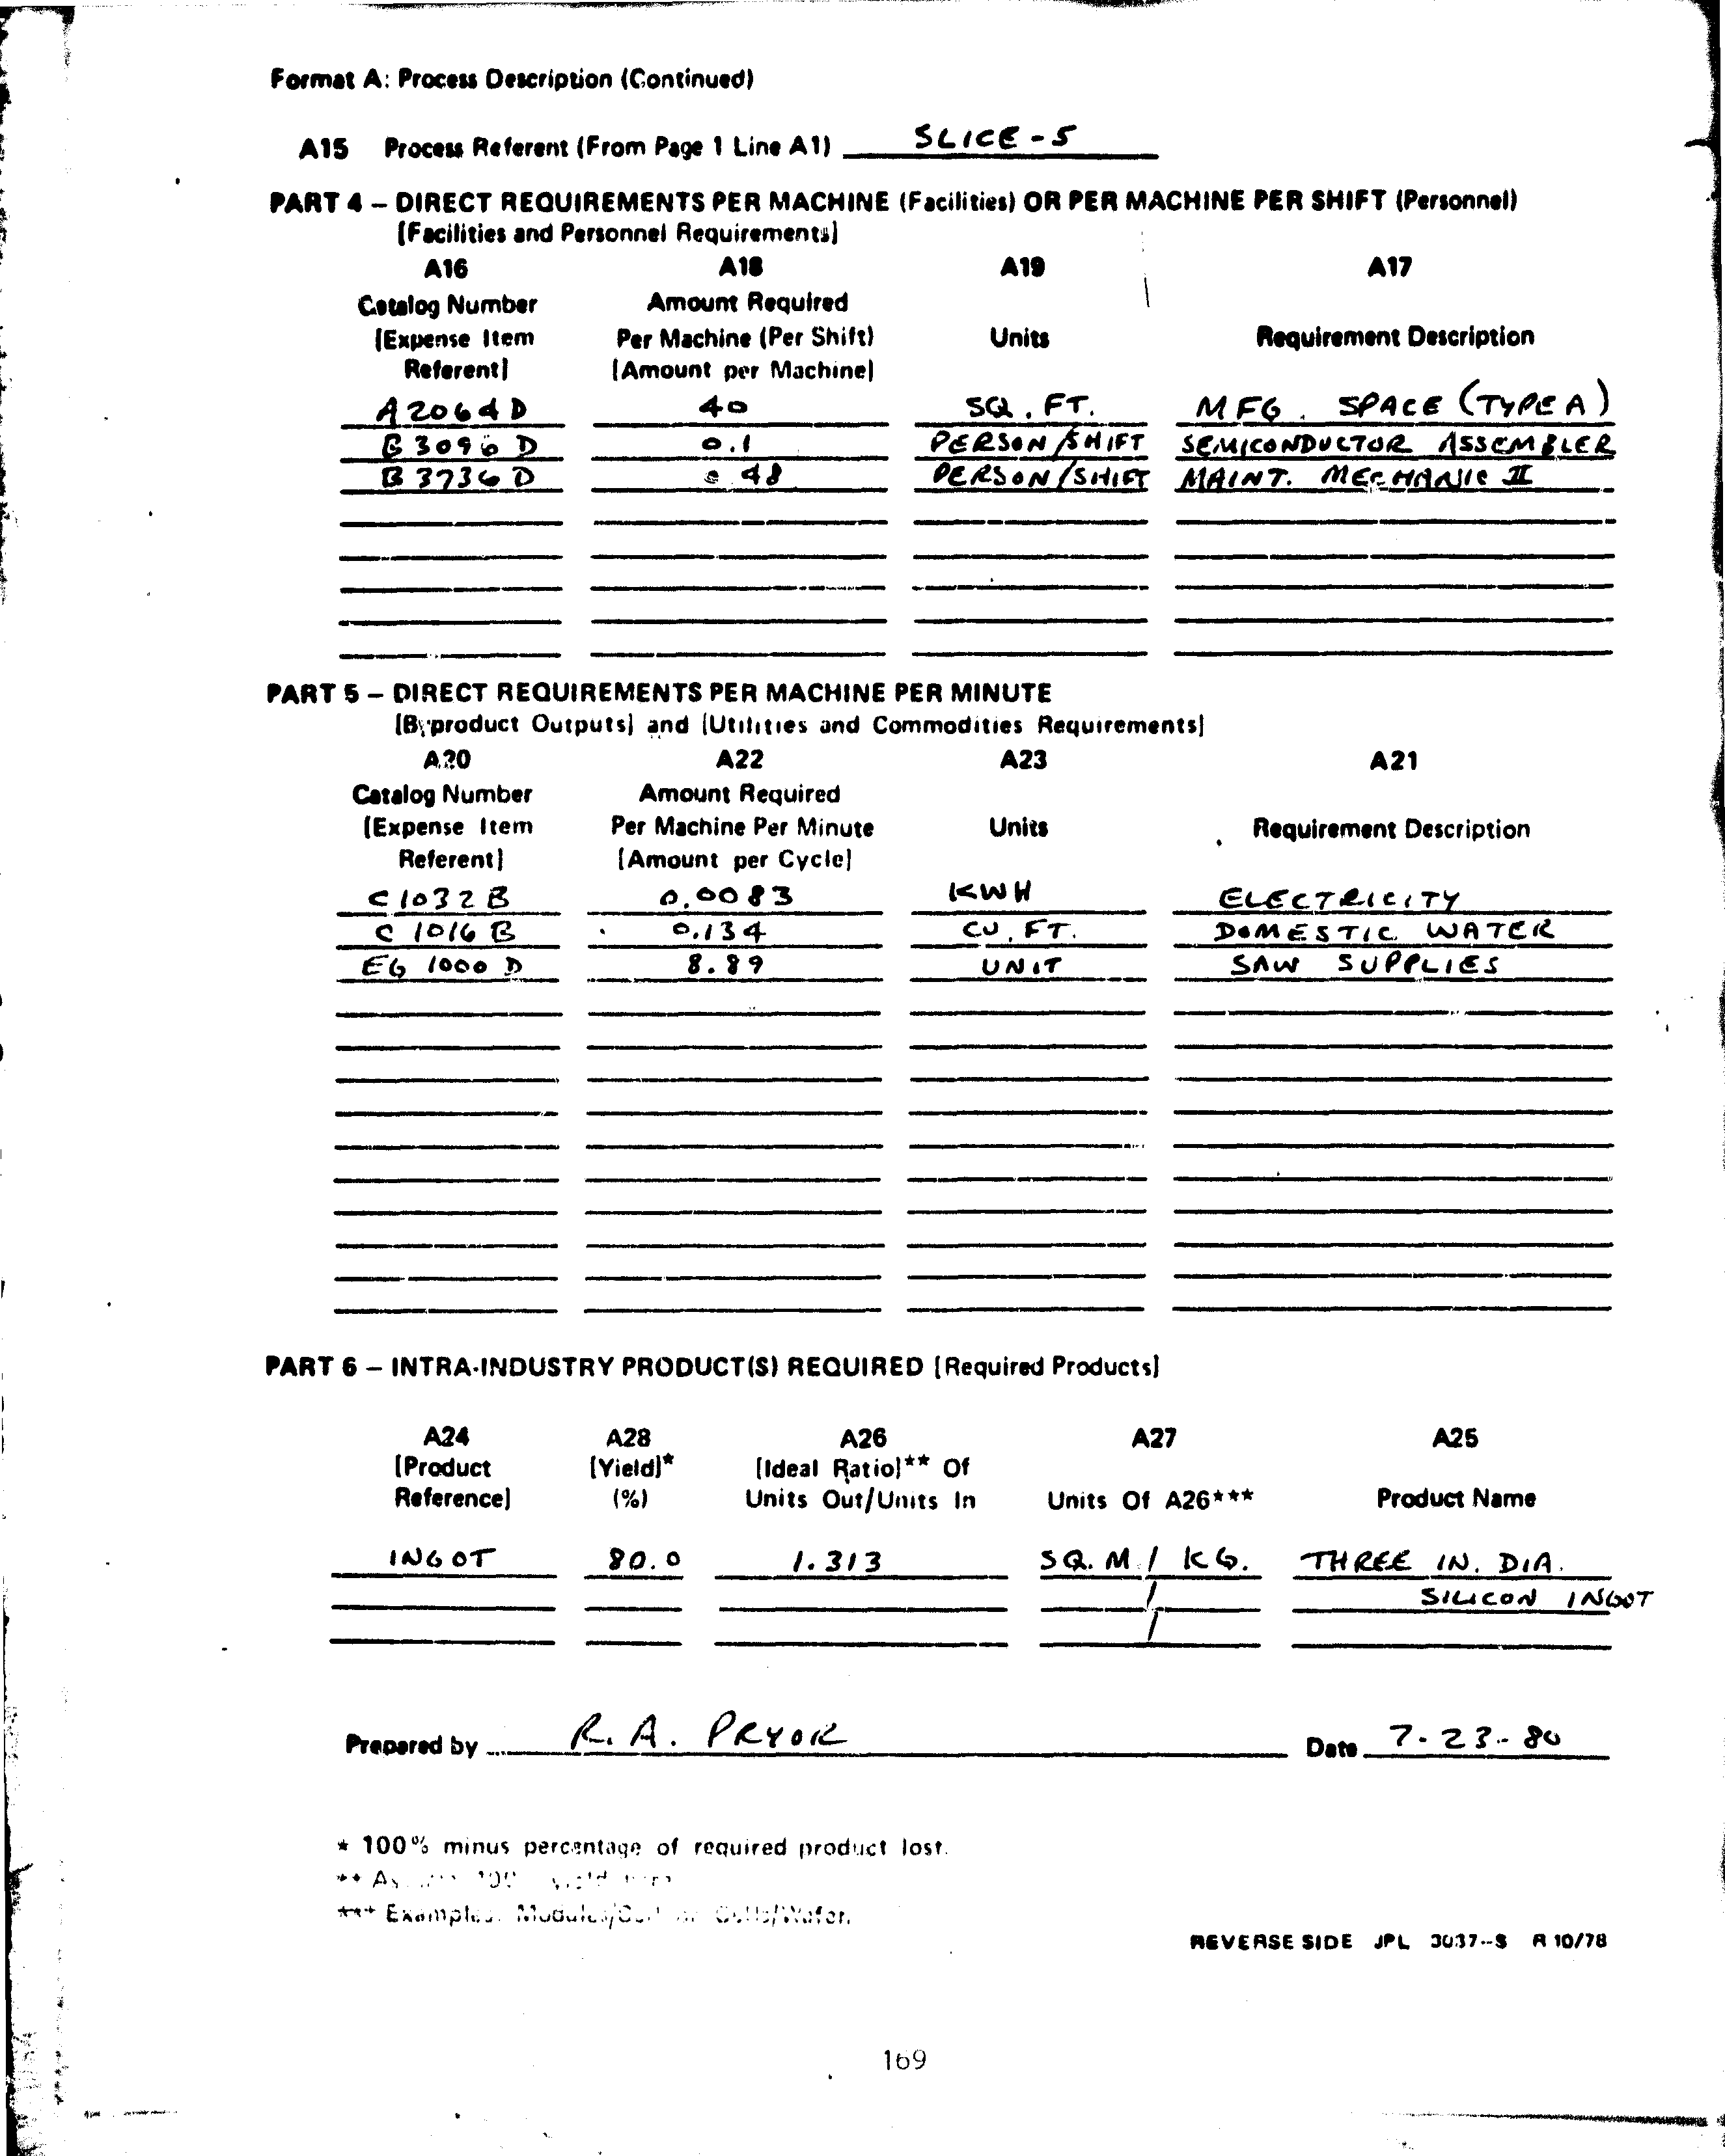 Format A: Process Description (Continued)
A15 Process Referent (From Page 1 Line A1) SLICE-5
PART 4 – DIRECT REQUIREMENTS PER MACHINE (Facilities) OR PER MACHINE PER SHIFT (Personnel)
[Facilities and Personnel Requirements]
A16 A18 A19 A17
Catalog Number Amount Required
[Expense Item Per Machine (Per Shift) Units Requirement Description
Referent] [Amount per Machine]
A2064D 40 SQ. FT. MFG. SPACE (TYPE A)
B3096D 0.1 PERSON/SHIFT SEMICONDUCTOR ASSEMBLER
B3736D 0.48 PERSON/SHIFT MAINT. MECHANIC II
PART 5 – DIRECT REQUIREMENTS PER MACHINE PER MINUTE
[Byproduct Outputs] and [Utilities and Commodities Requirements]
A20 A22 A23 A21
Catalog Number Amount Required
[Expense Item Per Machine Per Minute Units Requirement Description
Referent] [Amount per Cycle]
C1032B 0.0083 KWH ELECTRICITY
C1016B 0.134 CU. FT. DOMESTIC WATER
EG1000D 8.89 UNIT SAW SUPPLIES
PART 6 – INTRA-INDUSTRY PRODUCT(S) REQUIRED [Required Products]
A24 A28 A26 A27 A25
[Product [Yield]* [Ideal Ratio]** Of
Reference] (%) Units Out/Units In Units Of A26*** Product Name
INGOT 80.0 1.313 SQ. M / KG. THREE IN. DIA.
/ SILICON INGOT
/
Prepared by R. A. PRYOR Date 7-23-80
* 100% minus percentage of required product lost.
**
*** Examples: Modules/Cell or Cells/Wafer.
REVERSE SIDE JPL 3037–S R 10/78
169